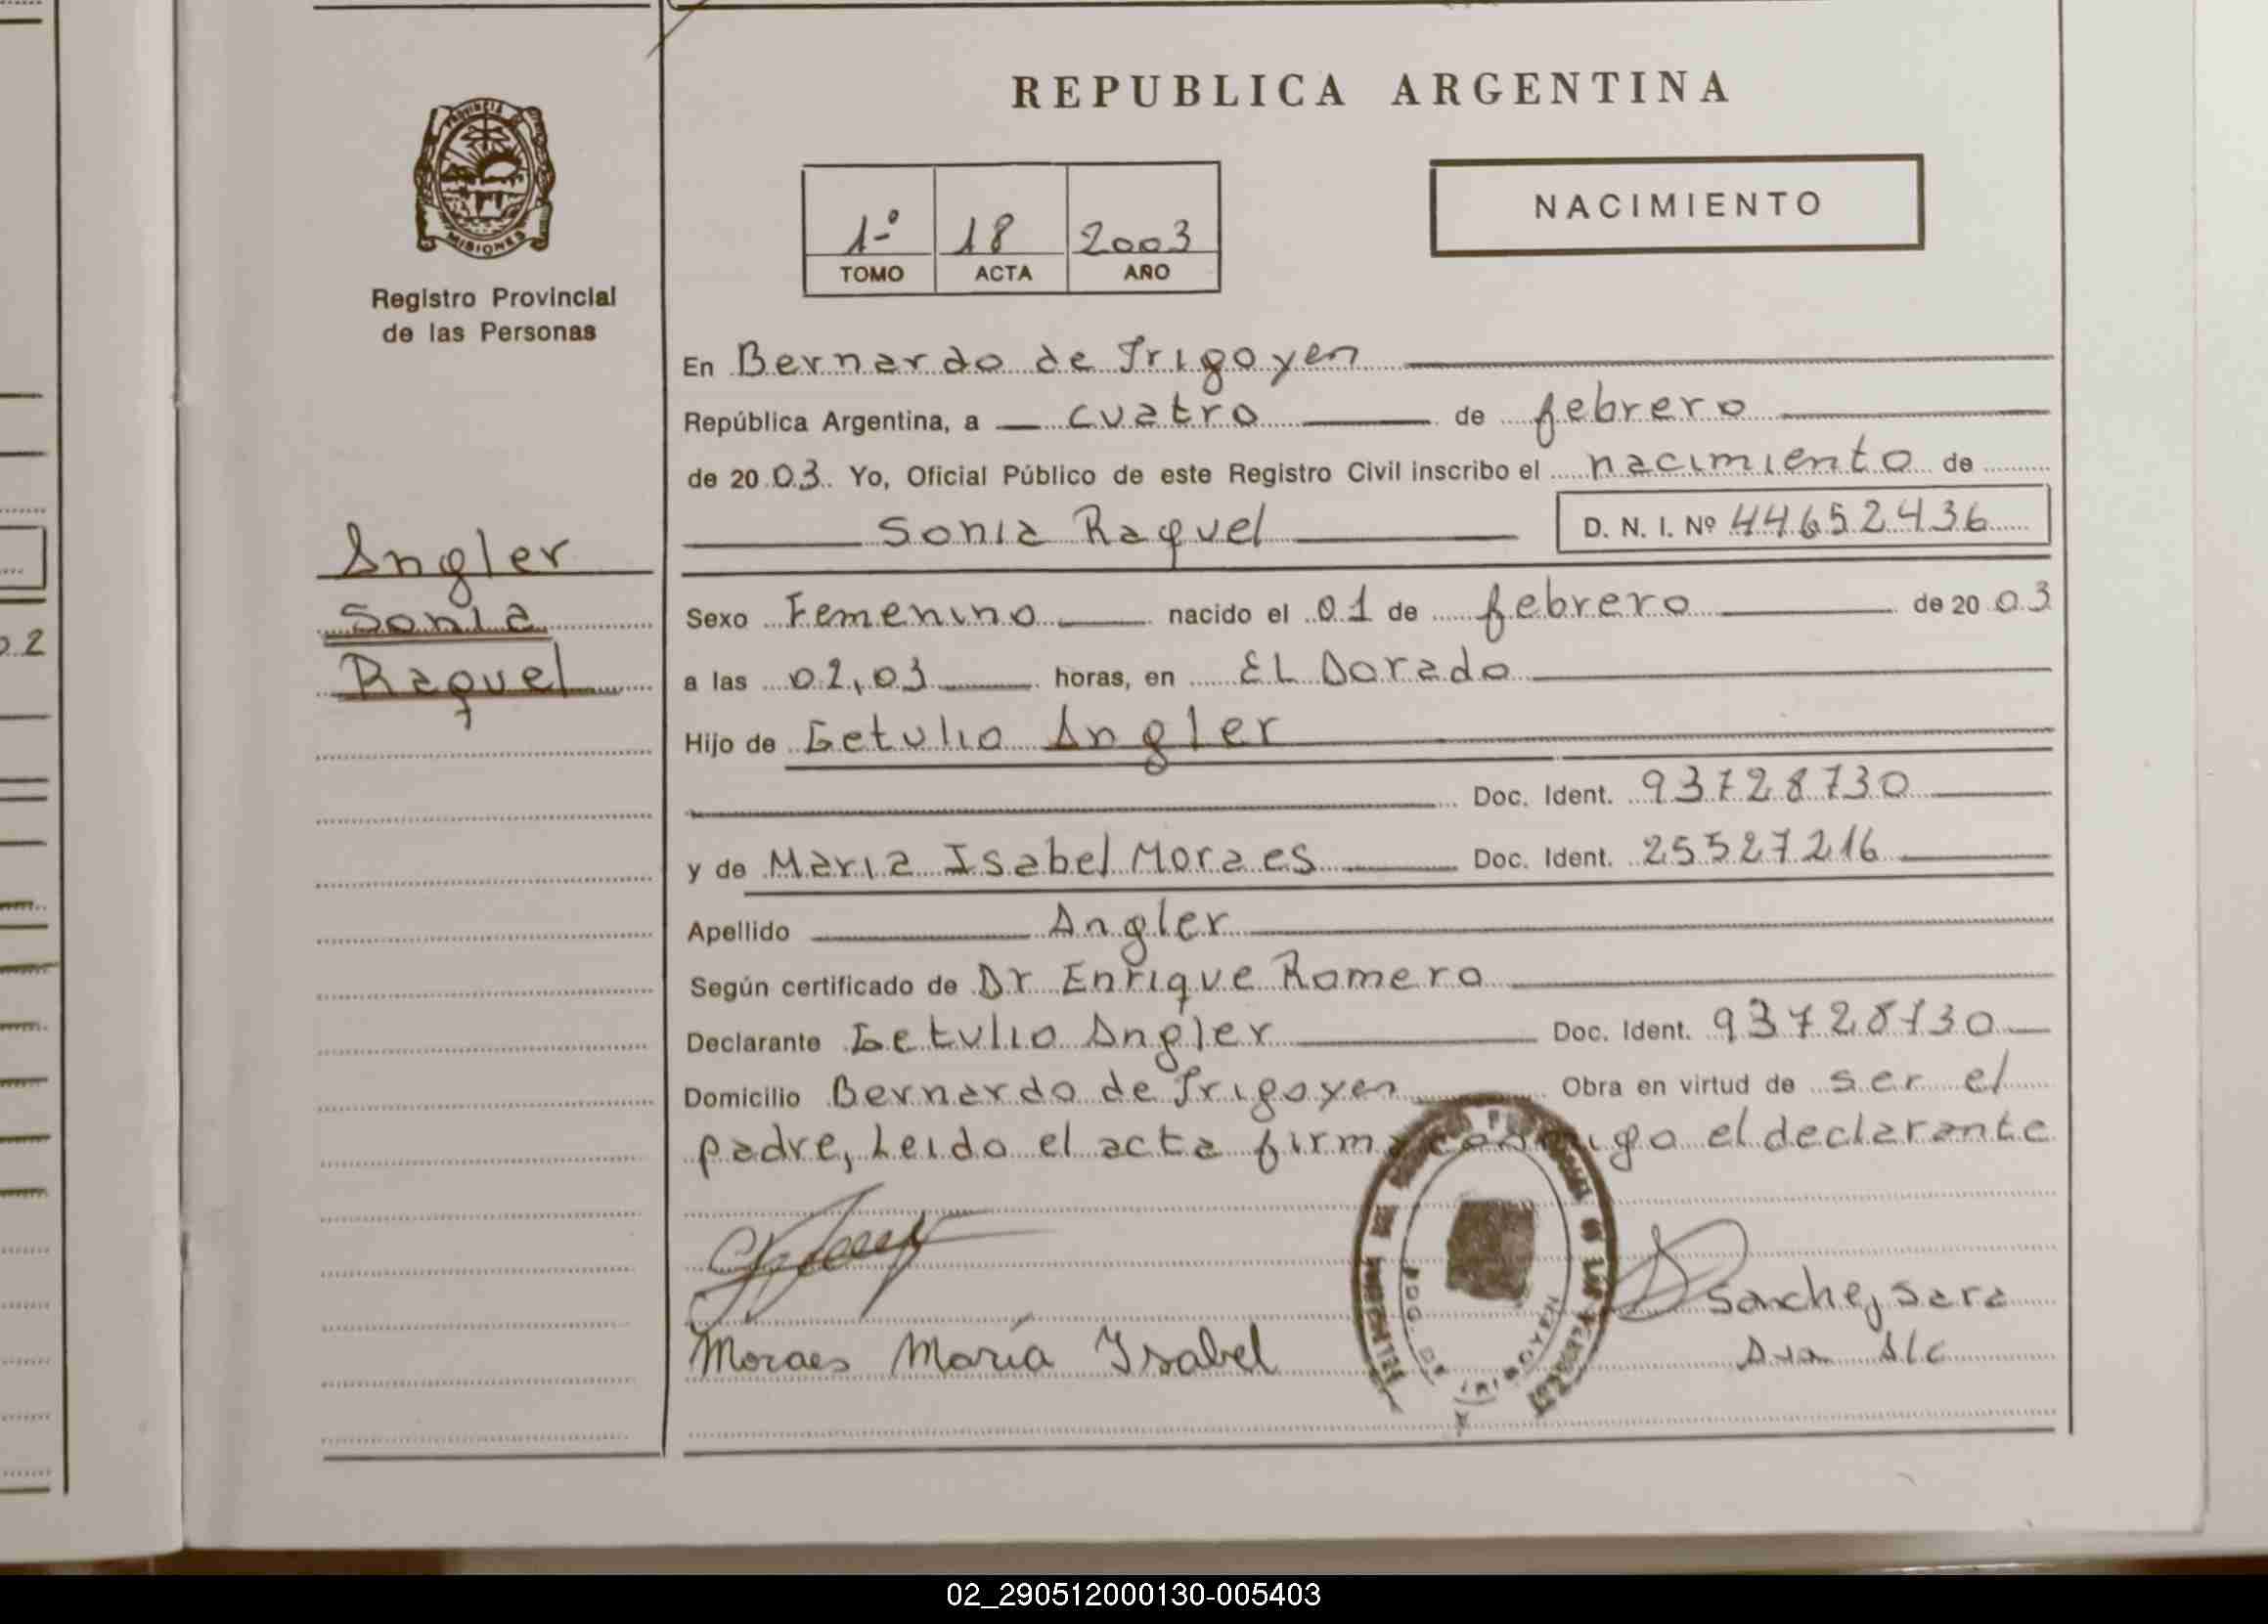 REPUBLICA ARGENTINA
PROVINCIA DE
MISIONES
Registro Provincial
de las Personas
NACIMIENTO
1º 18 2003
TOMO ACTA AÑO
En Bernardo de Irigoyen
República Argentina, a cuatro de febrero
de 2003. Yo, Oficial Público de este Registro Civil inscribo el nacimiento de
Sonia Raquel D. N. I. Nº 44652436
Angler
Sonia
Raquel
Sexo Femenino nacido el 01 de febrero de 2003
a las 02,03 horas, en EL Dorado
Hijo de Getulio Angler
Doc. Ident. 93728730
y de Maria Isabel Moraes Doc. Ident. 25527216
Apellido Angler
Según certificado de Dr Enrique Romero
Declarante Getulio Angler Doc. Ident. 93728730
Domicilio Bernardo de Irigoyen Obra en virtud de ser el
padre, Leido el acta firma conmigo el declarante
Sanchez Sara
Moraes María Isabel
BDO. DE IRIGOYEN
02_290512000130-005403